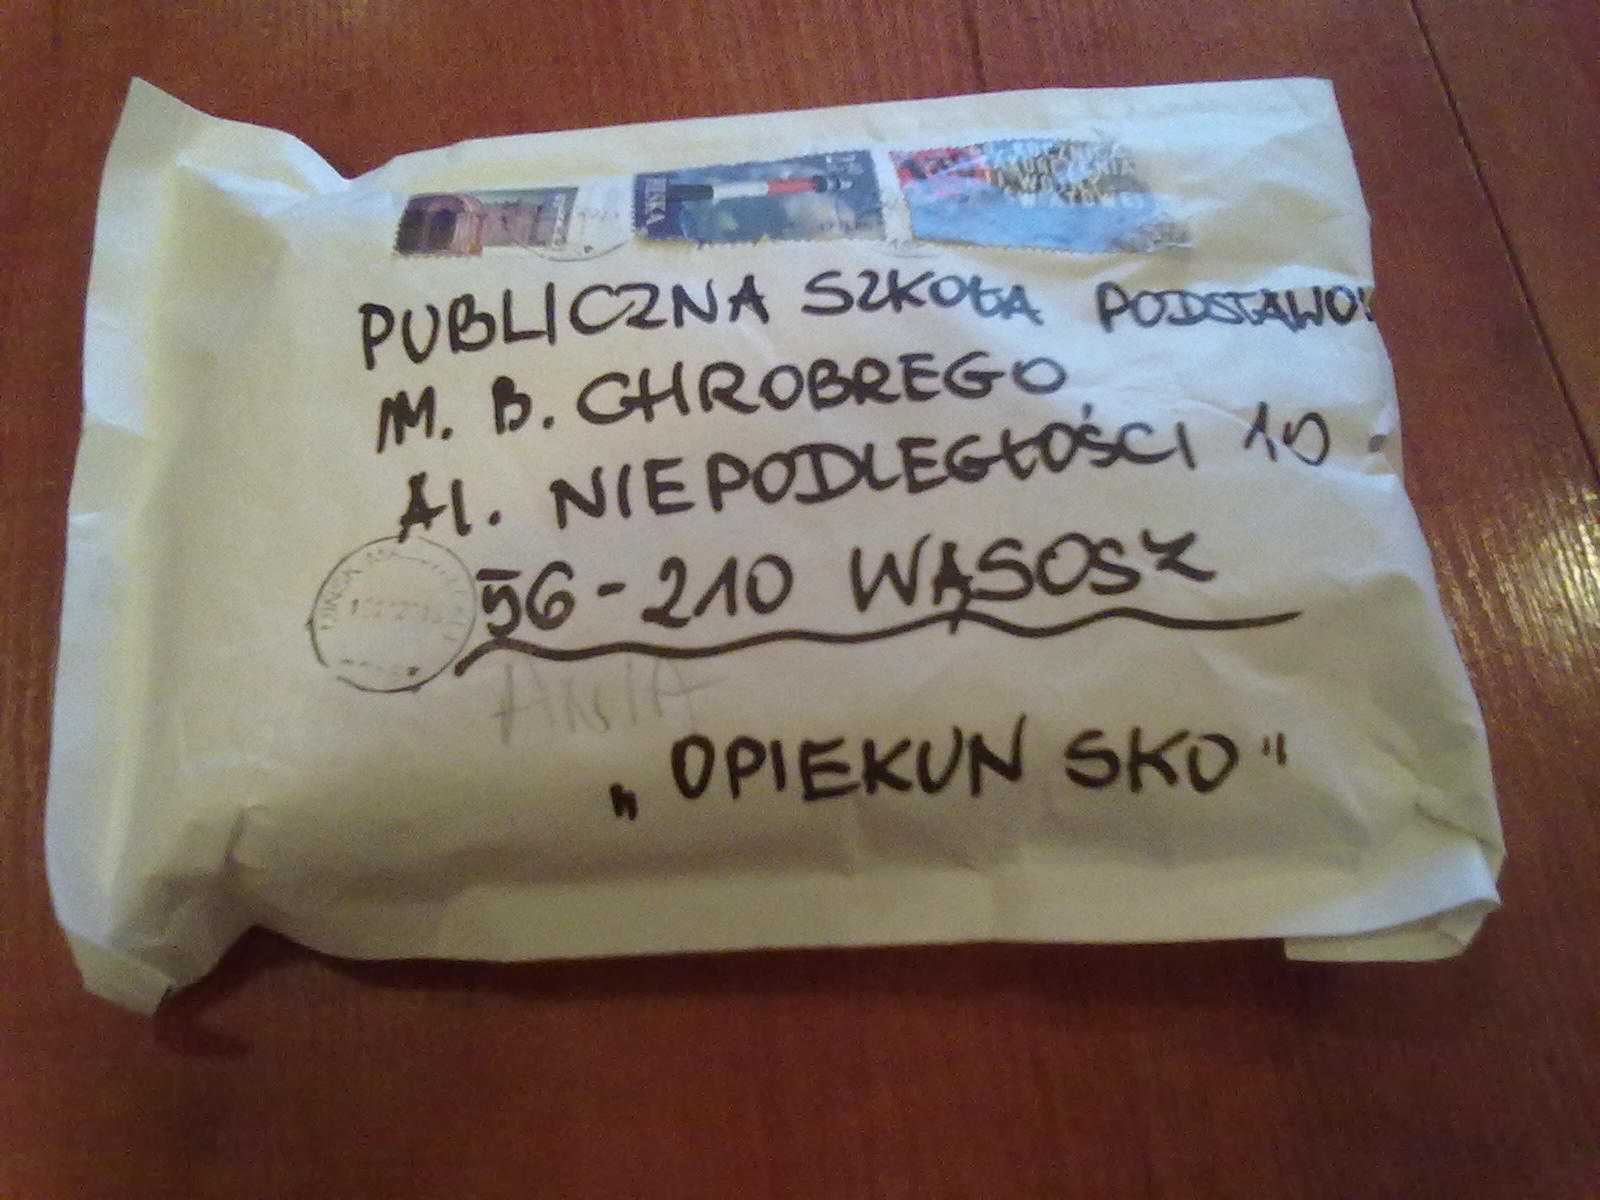 POLSKA
PUBLICZNA SZKOŁA PODSTAWO
IM. B. CHROBREGO
Al. NIEPODLEGŁOŚCI 10
56-210 WĄSOSZ
ANIA
„OPIEKUN SKO"